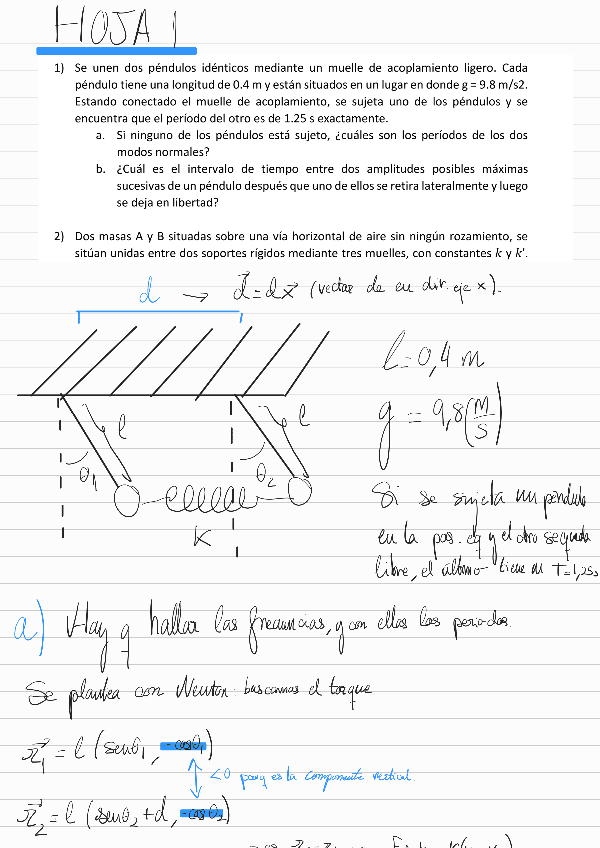 HOJA 1
1) Se unen dos péndulos idénticos mediante un muelle de acoplamiento ligero. Cada
péndulo tiene una longitud de 0.4 m y están situados en un lugar en donde g = 9.8 m/s2.
Estando conectado el muelle de acoplamiento, se sujeta uno de los péndulos y se
encuentra que el período del otro es de 1.25 s exactamente.
a. Si ninguno de los péndulos está sujeto, ¿cuáles son los períodos de los dos
modos normales?
b. ¿Cuál es el intervalo de tiempo entre dos amplitudes posibles máximas
sucesivas de un péndulo después que uno de ellos se retira lateralmente y luego
se deja en libertad?
2) Dos masas A y B situadas sobre una vía horizontal de aire sin ningún rozamiento, se
sitúan unidas entre dos soportes rígidos mediante tres muelles, con constantes k y k'.
d → d⃗ = d x⃗ (vector de en dir. eje x).
l = 0,4 m
g = 9,8 (m/s)
l
l
θ1
θ2
K
Si se sujeta un péndulo
en la pos. eq y el otro se queda
libre, el último tiene un T=1,25s
a) Hay q hallar las frecuencias, y con ellas los periodos.
Se plantea con Newton: buscamos el torque
r⃗1 = l (senθ1, -cosθ1)
<0 porq es la componente vertical.
r⃗2 = l (senθ2 + d, -cosθ2)